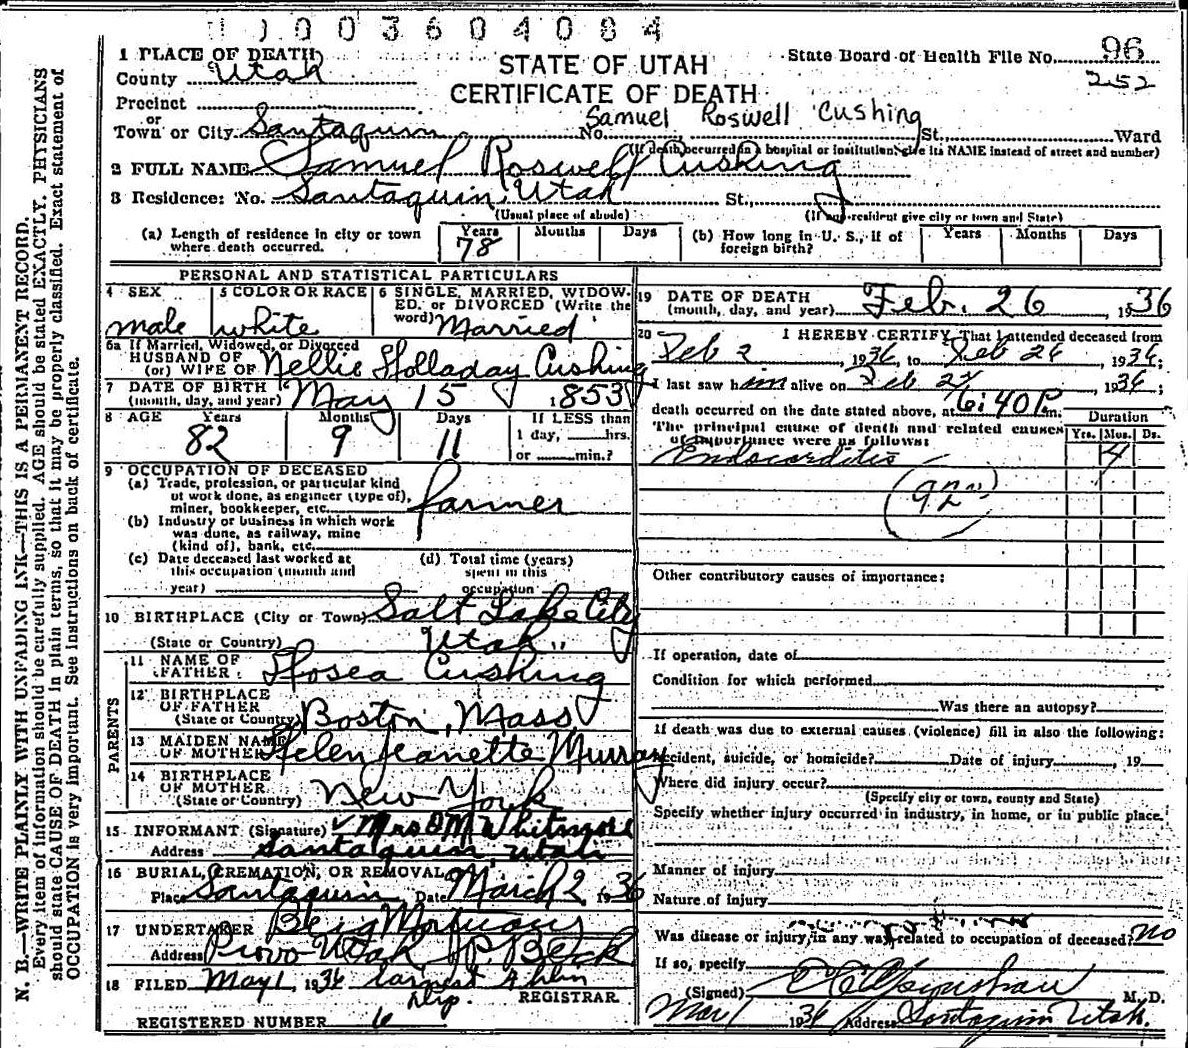 0003604084
1 PLACE OF DEATH
County Utah
STATE OF UTAH
CERTIFICATE OF DEATH
State Board of Health File No. 96
252
Precinct
or
Town or City Santaquin No. Samuel Roswell Cushing St. Ward
(If death occurred in a hospital or institution, give its NAME instead of street and number)
2 FULL NAME Samuel Roswell Cushing
3 Residence: No. Santaquin, Utah St.,
(Usual place of abode) (If non-resident give city or town and State)
(a) Length of residence in city or town where death occurred. Years 78 Months Days
(b) How long in U. S., if of foreign birth? Years Months Days
PERSONAL AND STATISTICAL PARTICULARS
4 SEX male
5 COLOR OR RACE white
6 SINGLE, MARRIED, WIDOWED, or DIVORCED (Write the word) Married
6a If Married, Widowed, or Divorced
HUSBAND OF
(or) WIFE OF Nellie Holladay Cushing
7 DATE OF BIRTH
(month, day, and year) May 15 1853
8 AGE Years 82 Months 9 Days 11 If LESS than
1 day, hrs.
or min.?
9 OCCUPATION OF DECEASED
(a) Trade, profession, or particular kind
of work done, as engineer (type of),
miner, bookkeeper, etc. farmer
(b) Industry or business in which work
was done, as railway, mine
(kind of), bank, etc.
(c) Date deceased last worked at
this occupation (month and
year)
(d) Total time (years)
spent in this
occupation
10 BIRTHPLACE (City or Town) Salt Lake City
(State or Country) Utah
PARENTS
11 NAME OF
FATHER Hosea Cushing
12 BIRTHPLACE
OF FATHER
(State or Country) Boston, Mass
13 MAIDEN NAME
OF MOTHER Helen Jeanette Murray
14 BIRTHPLACE
OF MOTHER
(State or Country) New York
15 INFORMANT (Signature) Mrs O M Whitmore
Address Santaquin, Utah
16 BURIAL, CREMATION, OR REMOVAL
Place Santaquin Date March 2 1936
17 UNDERTAKER Berg Mortuary
Address Provo Utah J P. Beck
18 FILED May 1, 1936
Dep. REGISTRAR
REGISTERED NUMBER 6
19 DATE OF DEATH
(month, day, and year) Feb. 26, 1936
20 I HEREBY CERTIFY, That I attended deceased from
Feb 2 1936, to Feb 26, 1936;
I last saw him alive on Feb 1936;
death occurred on the date stated above, at 6:40 P. m.
The principal cause of death and related causes
of importance were as follows:
Duration
Yrs. Mos. Ds.
Endocarditis 4
Other contributory causes of importance:
If operation, date of
Condition for which performed
Was there an autopsy?
If death was due to external causes (violence) fill in also the following:
Accident, suicide, or homicide? Date of injury , 19
Where did injury occur?
(Specify city or town, county and State)
Specify whether injury occurred in industry, in home, or in public place.
Manner of injury
Nature of Injury
Was disease or injury in any way related to occupation of deceased? no
If so, specify
(Signed) M. D.
Mar 1 1936 Address Santaquin Utah.
N. B.—WRITE PLAINLY WITH UNFADING INK—THIS IS A PERMANENT RECORD.
Every item of information should be carefully supplied. AGE should be stated EXACTLY. PHYSICIANS
should state CAUSE OF DEATH in plain terms, so that it may be properly classified. Exact statement of
OCCUPATION is very important. See instructions on back of certificate.